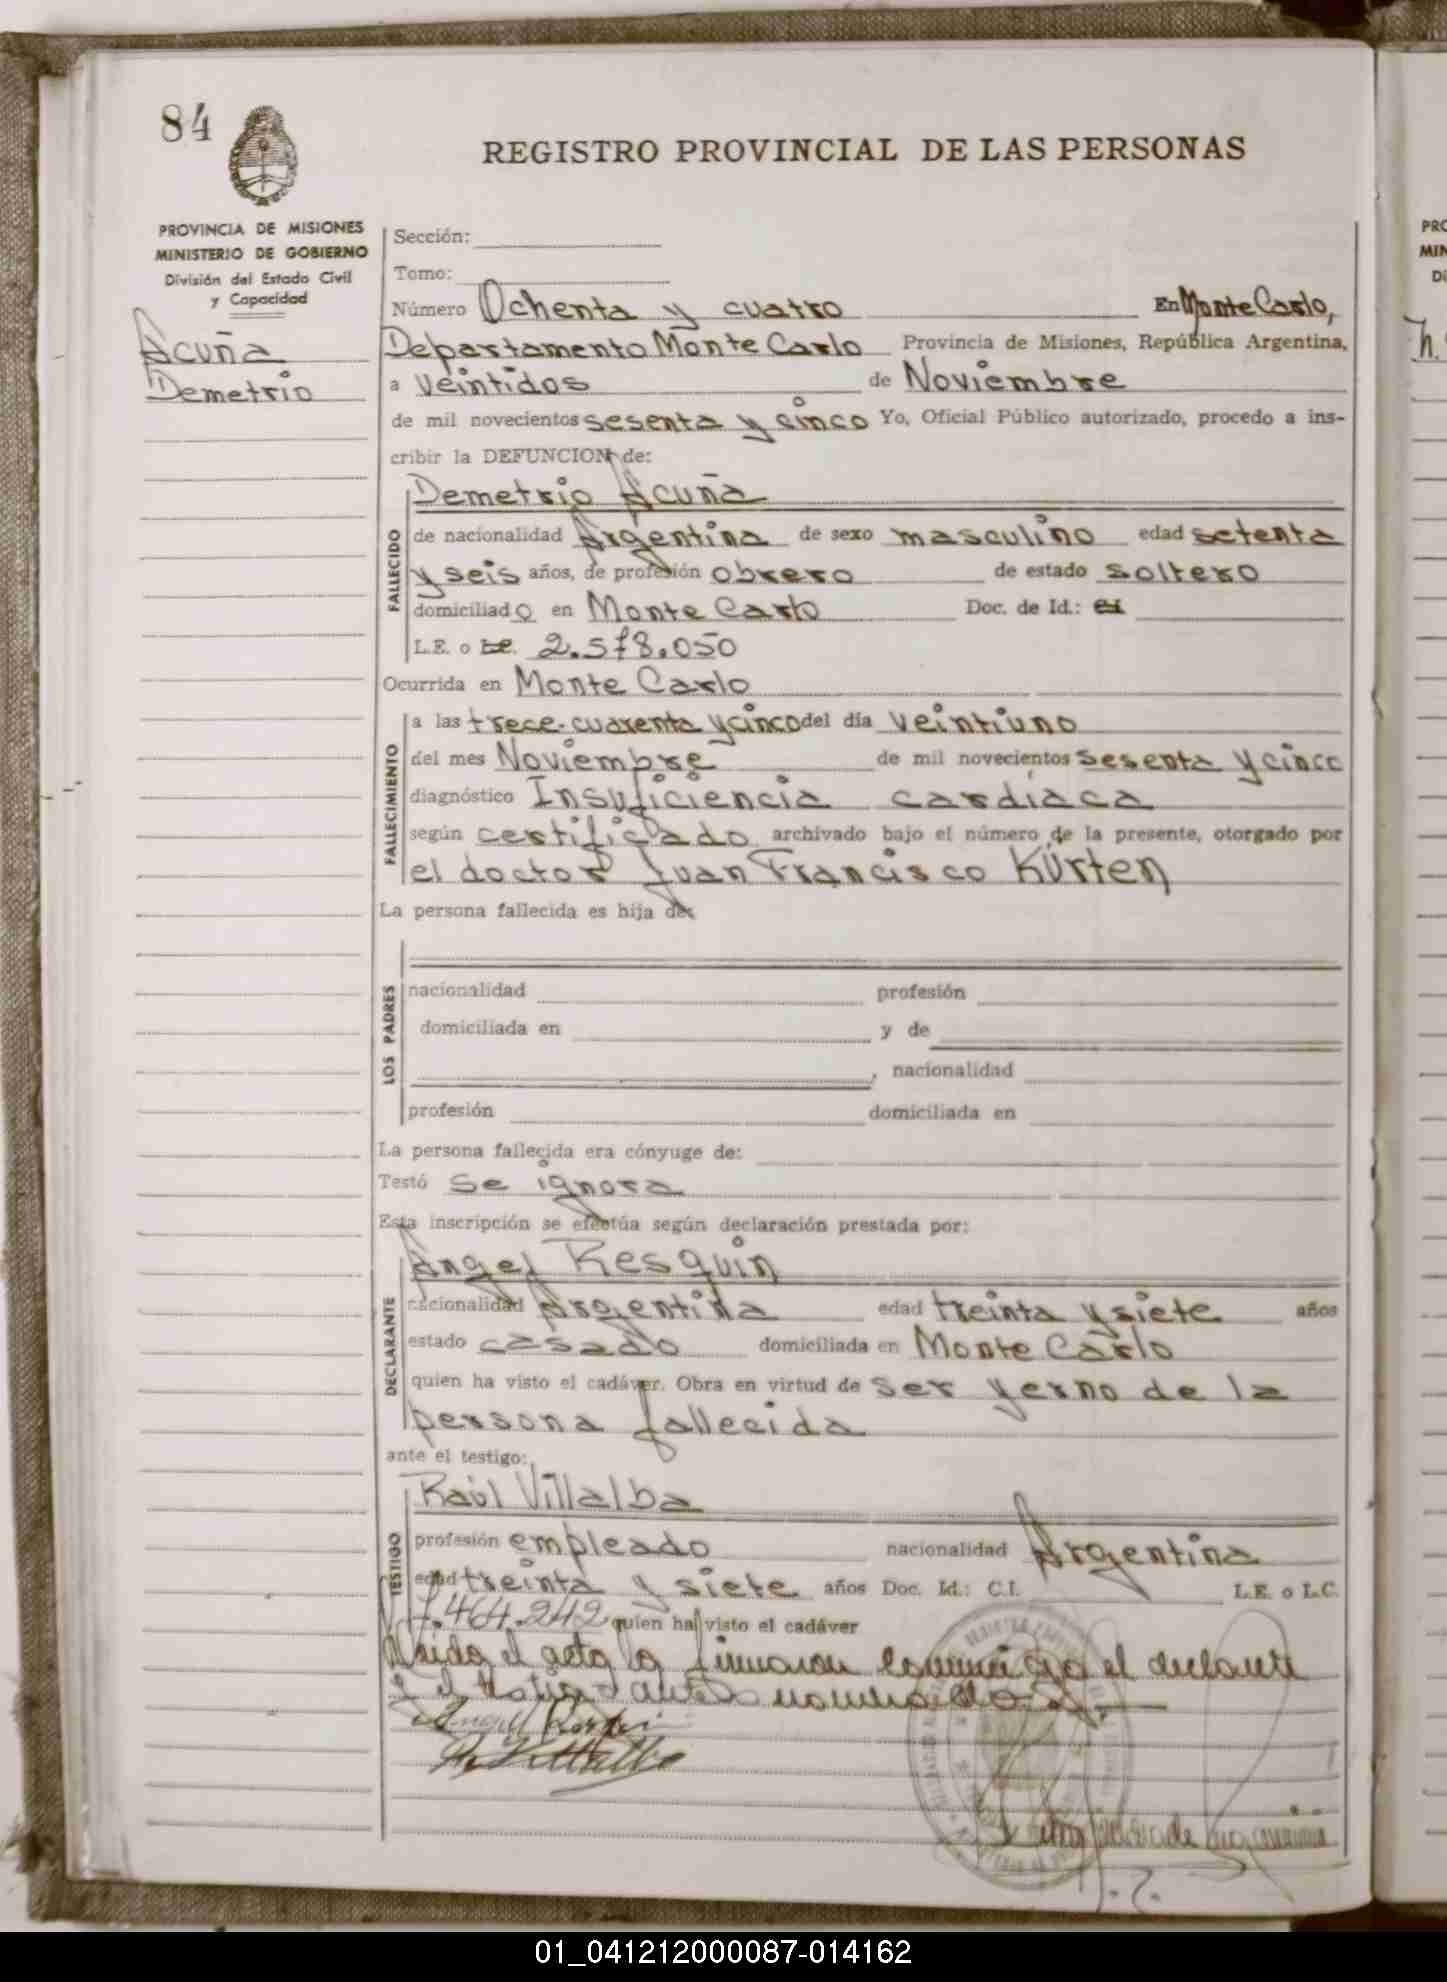 84
REGISTRO PROVINCIAL DE LAS PERSONAS
PROVINCIA DE MISIONES
MINISTERIO DE GOBIERNO
División del Estado Civil
y Capacidad
Acuña
Demetrio
Sección:
Tomo:
Número Ochenta y cuatro En Monte Carlo,
Departamento Monte Carlo Provincia de Misiones, República Argentina,
a veintidos de Noviembre
de mil novecientos sesenta y cinco Yo, Oficial Público autorizado, procedo a ins-
cribir la DEFUNCION de:
Demetrio Acuña
FALLECIDO
de nacionalidad Argentina de sexo masculino edad setenta
y seis años, de profesión obrero de estado soltero
domiciliado en Monte Carlo Doc. de Id.:
L.E. o 2.578.050
Ocurrida en Monte Carlo
FALLECIMIENTO
a las trece-cuarenta y cinco del día veintiuno
del mes Noviembre de mil novecientos sesenta y cinco
diagnóstico Insuficiencia cardíaca
según certificado archivado bajo el número de la presente, otorgado por
el doctor Juan Francisco Kürten
La persona fallecida es hija de:
LOS PADRES
nacionalidad profesión
domiciliada en y de
, nacionalidad
profesión domiciliada en
La persona fallecida era cónyuge de:
Testó Se ignora
Esta inscripción se efectúa según declaración prestada por:
Angel Resquin
DECLARANTE
nacionalidad Argentina edad treinta y siete años
estado casado domiciliada en Monte Carlo
quien ha visto el cadáver. Obra en virtud de ser yerno de la
persona fallecida
ante el testigo:
Raúl Villalba
TESTIGO
profesión empleado nacionalidad Argentina
edad treinta y siete años Doc. Id.: C.I. L.E. o L.C.
7.464.242 quien ha visto el cadáver
Leida el acta la firmaron conmigo el declarante
y el testigo antes nombrados.
01_041212000087-014162